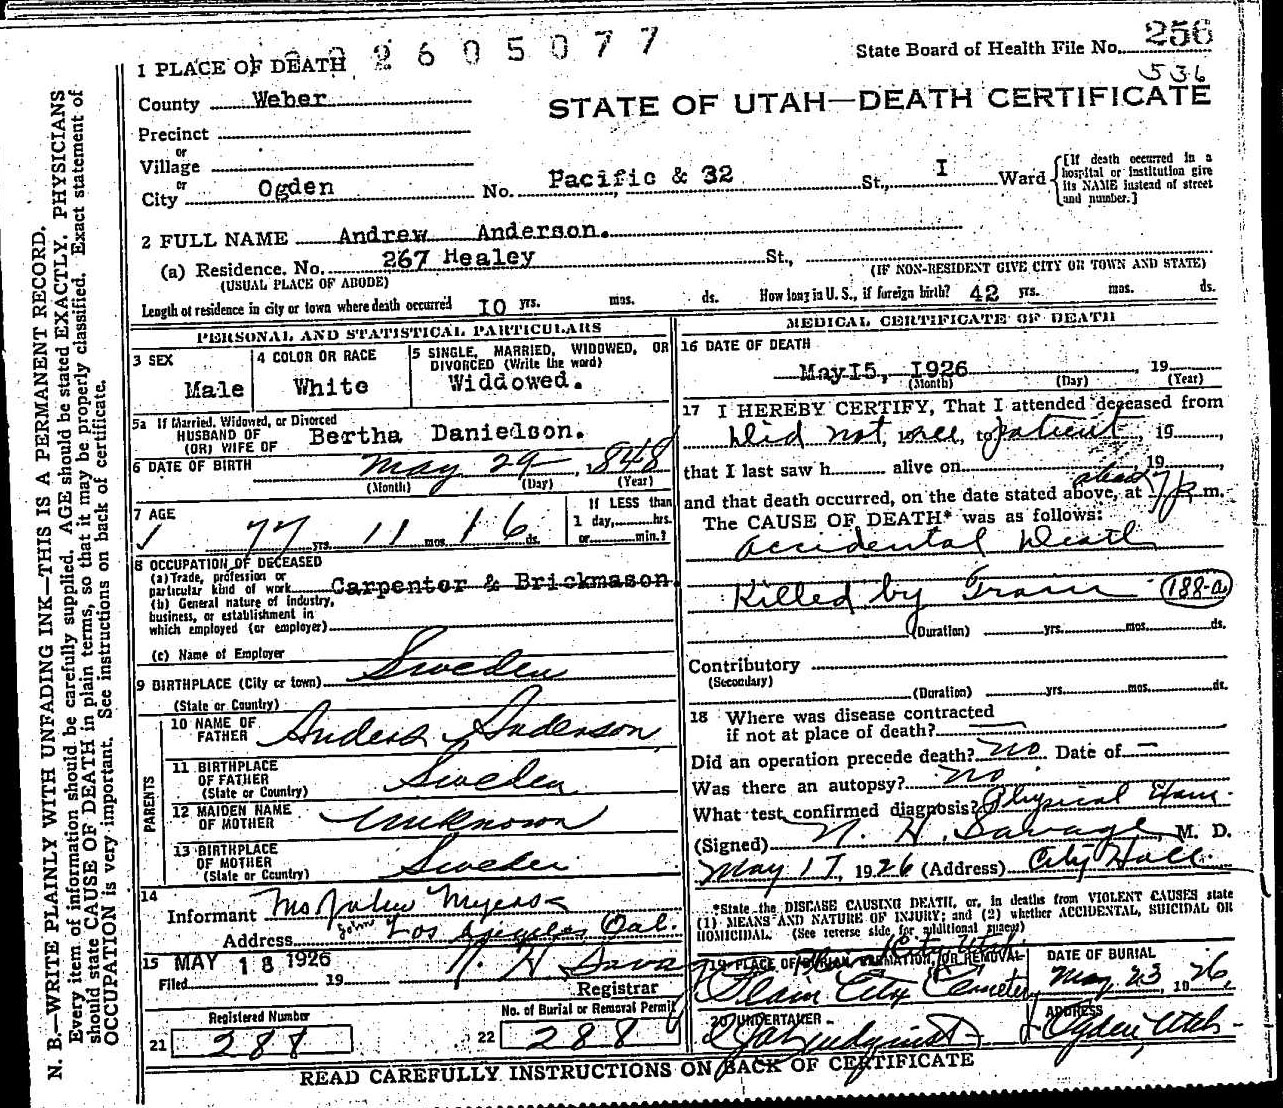 2605077
State Board of Health File No. 256
536
1 PLACE OF DEATH
STATE OF UTAH—DEATH CERTIFICATE
County Weber
Precinct
or
Village
or
City Ogden No. Pacific & 32 St., I Ward
[If death occurred in a hospital or institution give its NAME instead of street and number.]
2 FULL NAME Andrew Anderson.
(a) Residence. No. 267 Healey St.,
(USUAL PLACE OF ABODE) (IF NON-RESIDENT GIVE CITY OR TOWN AND STATE)
Length of residence in city or town where death occurred 10 yrs. mos. ds. How long in U. S., if foreign birth? 42 yrs. mos. ds.
PERSONAL AND STATISTICAL PARTICULARS
3 SEX Male
4 COLOR OR RACE White
5 SINGLE, MARRIED, WIDOWED, OR DIVORCED (Write the word) Widdowed.
5a If Married, Widowed, or Divorced
HUSBAND OF
(OR) WIFE OF Bertha Danielson.
6 DATE OF BIRTH May 29 1848
(Month) (Day) (Year)
7 AGE 77 yrs. 11 mos. 16 ds.
If LESS than
1 day, hrs.
or min.?
8 OCCUPATION OF DECEASED
(a) Trade, profession or
particular kind of work Carpenter & Brickmason.
(b) General nature of industry,
business, or establishment in
which employed (or employer)
(c) Name of Employer
9 BIRTHPLACE (City or town) Sweden
(State or Country)
PARENTS
10 NAME OF
FATHER Anders Anderson
11 BIRTHPLACE
OF FATHER
(State or Country) Sweden
12 MAIDEN NAME
OF MOTHER Unknown
13 BIRTHPLACE
OF MOTHER
(State or Country) Sweden
14
Informant Mrs John Myers
John
Address Los Angeles Cal.
15 MAY 18 1926
Filed 19 Registrar
Registered Number
21 288
No. of Burial or Removal Permit
22 288
MEDICAL CERTIFICATE OF DEATH
16 DATE OF DEATH
May 15, 1926, 19
(Month) (Day) (Year)
17 I HEREBY CERTIFY, That I attended deceased from
Did not see, to patient, 19,
that I last saw h alive on 19,
and that death occurred, on the date stated above, at about 7 p. m.
The CAUSE OF DEATH* was as follows:
Accidental Death
Killed by Train 188-a
(Duration) yrs. mos. ds.
Contributory
(Secondary)
(Duration) yrs. mos. ds.
18 Where was disease contracted
if not at place of death?
Did an operation precede death? no Date of —
Was there an autopsy? no
What test confirmed diagnosis? Physical Exam.
(Signed) N. H. Savage, M. D.
May 17, 1926 (Address) City Hall
*State the DISEASE CAUSING DEATH, or, in deaths from VIOLENT CAUSES state
(1) MEANS AND NATURE OF INJURY; and (2) whether ACCIDENTAL, SUICIDAL OR
HOMICIDAL. (See reverse side for additional space)
19 PLACE OF BURIAL, CREMATION, OR REMOVAL
Plain City Cemetery
DATE OF BURIAL
May 23, 1926,
20 UNDERTAKER
ADDRESS
Ogden, Utah
READ CAREFULLY INSTRUCTIONS ON BACK OF CERTIFICATE
N. B.—WRITE PLAINLY WITH UNFADING INK—THIS IS A PERMANENT RECORD.
Every item of information should be carefully supplied. AGE should be stated EXACTLY. PHYSICIANS
should state CAUSE OF DEATH in plain terms, so that it may be properly classified. Exact statement of
OCCUPATION is very important. See instructions on back of certificate.